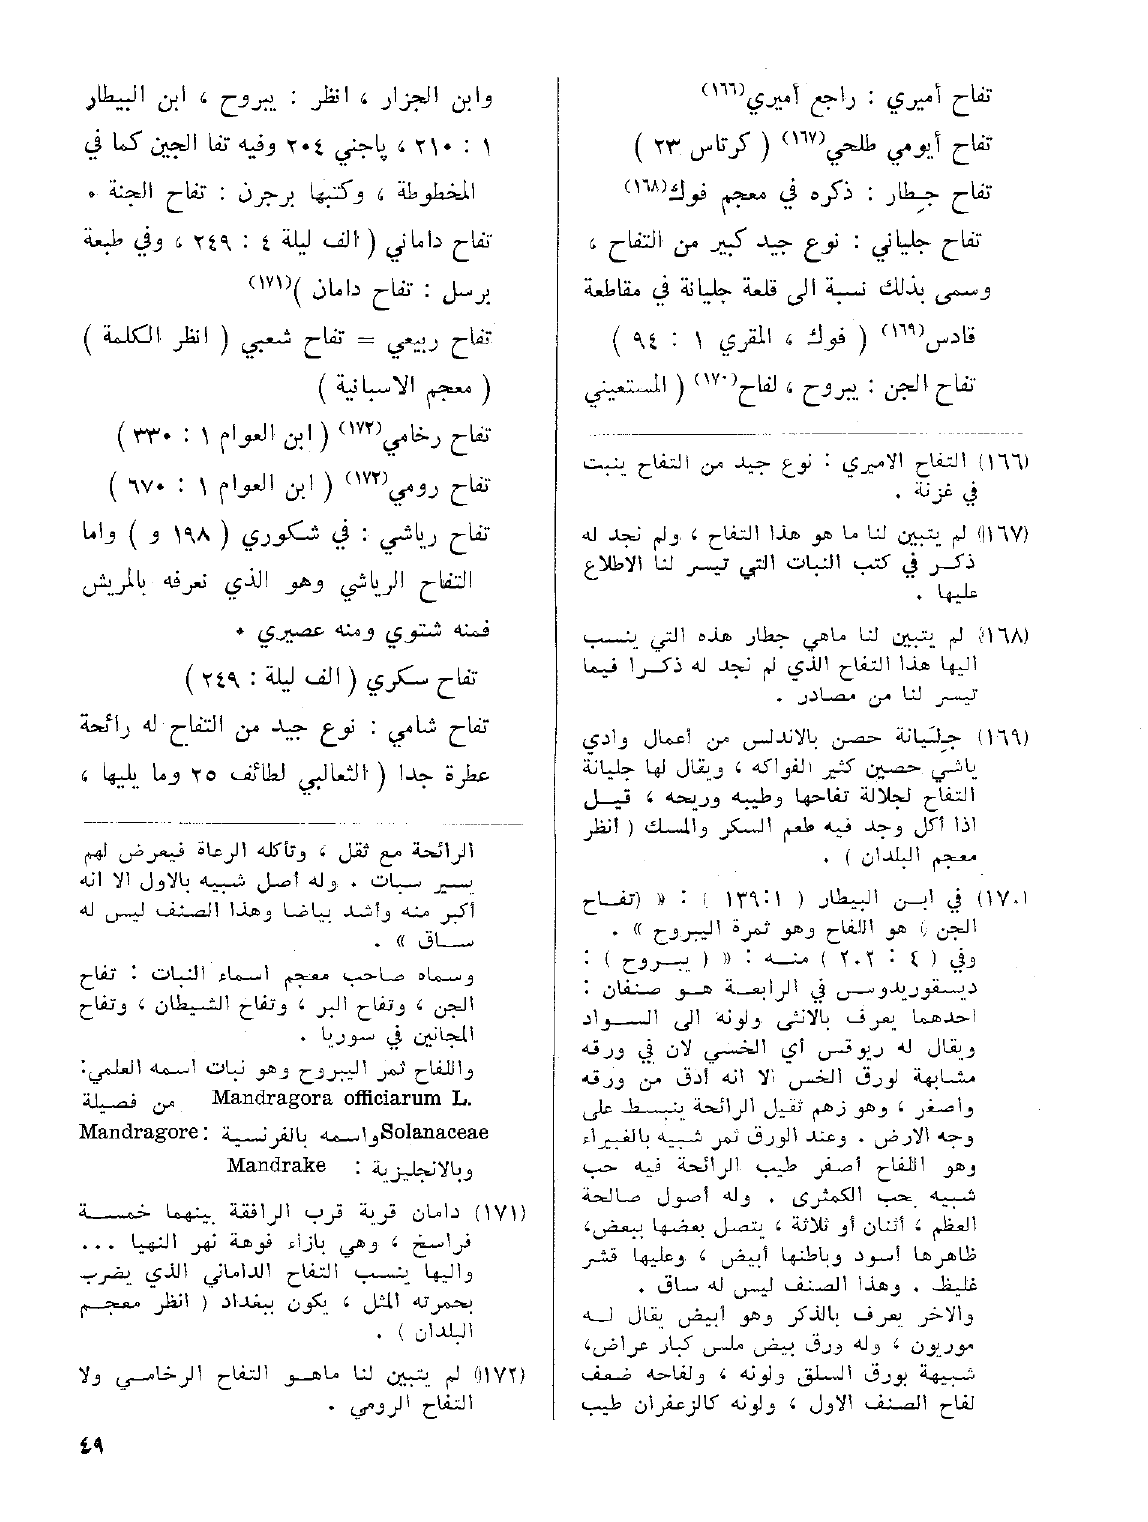 تفاح أميري : راجع أميري(١٦٦)
تفاح أيومي طلحي(١٦٧) ( كرتاس ٢٣ )
تفاح جِطار : ذكره في معجم فوك(١٦٨)
تفاح جلياني : نوع جيد كبير من التفاح ،
وسمى بذلك نسبة الى قلعة جليانة في مقاطعة
قادس(١٦٩) ( فوك ، المقري ١ : ٩٤ )
تفاح الجن : يبروح ، لفاح(١٧٠) ( المستعيني
(١٦٦) التفاح الاميري : نوع جيد من التفاح ينبت
في غزنة .
(١٦٧) لم يتبين لنا ما هو هذا التفاح ، ولم نجد له
ذكر في كتب النبات التي تيسر لنا الاطلاع
عليها .
(١٦٨) لم يتبين لنا ماهي جطار هذه التي ينسب
اليها هذا التفاح الذي لم نجد له ذكرا فيما
تيسر لنا من مصادر .
(١٦٩) جِلِيانة حصن بالاندلس من أعمال وادي
ياشي حصين كثير الفواكه ، ويقال لها جليانة
التفاح لجلالة تفاحها وطيبه وريحه ، قيل
اذا أكل وجد فيه طعم السكر والمسك ( أنظر
معجم البلدان ) .
١٧٠١ في ابن البيطار ( ١٣٩:١ ) : « (تفاح
الجن ) هو اللفاح وهو ثمرة اليبروح » .
وفي ( ٤ : ٢٠٢ ) منه : « ( يبروح ) :
ديسقوريدوس في الرابعة هو صنفان :
احدهما يعرف بالانثى ولونه الى السواد
ويقال له ريوقس أي الخسي لان في ورقه
مشابهة لورق الخس الا انه أدق من ورقه
وأصغر ، وهو زهم ثقيل الرائحة ينبسط على
وجه الارض . وعند الورق ثمر شبيه بالغبيراء
وهو اللفاح أصفر طيب الرائحة فيه حب
شبيه بحب الكمثرى . وله أصول صالحة
العظم ، أثنان أو ثلاثة ، يتصل بعضها ببعض،
ظاهرها أسود وباطنها أبيض ، وعليها قشر
غليظ . وهذا الصنف ليس له ساق .
والاخر يعرف بالذكر وهو أبيض يقال له
موريون ، وله ورق بيض ملس كبار عراض،
شبيهة بورق السلق ولونه ، ولفاحه ضعف
لفاح الصنف الاول ، ولونه كالزعفران طيب
وابن الجزار ، انظر : يبروح ، ابن البيطار
١ : ٢١٠ ، پاجني ٢٠٤ وفيه تفا الجين كما في
المخطوطة ، وكتبها برجرن : تفاح الجنة .
تفاح داماني ( الف ليلة ٤ : ٢٤٩ ، وفي طبعة
برسل : تفاح دامان )(١٧١)
تفاح ربيعي = تفاح شعبي ( انظر الكلمة )
( معجم الاسبانية )
تفاح رخامي(١٧٢) ( ابن العوام ١ : ٣٣٠ )
تفاح رومي(١٧٢) ( ابن العوام ١ : ٦٧٠ )
تفاح رياشي : في شكوري ( ١٩٨ و ) واما
التفاح الرياشي وهو الذي نعرفه بالمريش
فمنه شتوي ومنه عصيري .
تفاح سكري ( الف ليلة : ٢٤٩ )
تفاح شامي : نوع جيد من التفاح له رائحة
عطرة جدا ( الثعالبي لطائف ٢٥ وما يليها ،
الرائحة مع ثقل ، وتأكله الرعاة فيعرض لهم
يسير سبات . وله أصل شبيه بالاول الا انه
أكبر منه وأشد بياضا وهذا الصنف ليس له
ساق » .
وسماه صاحب معجم اسماء النبات : تفاح
الجن ، وتفاح البر ، وتفاح الشيطان ، وتفاح
المجانين في سوريا .
واللفاح ثمر اليبروح وهو نبات اسمه العلمي:
Mandragora officiarum L. من فصيلة
Solanaceae واسمه بالفرنسية : Mandragore
وبالانجليزية : Mandrake
(١٧١) دامان قرية قرب الرافقة بينهما خمسة
فراسخ ، وهي بازاء فوهة نهر النهيا ...
واليها ينسب التفاح الداماني الذي يضرب
بحمرته المثل ، يكون ببغداد ( انظر معجم
البلدان ) .
(١٧٢) لم يتبين لنا ماهو التفاح الرخامي ولا
التفاح الرومي .
٤٩